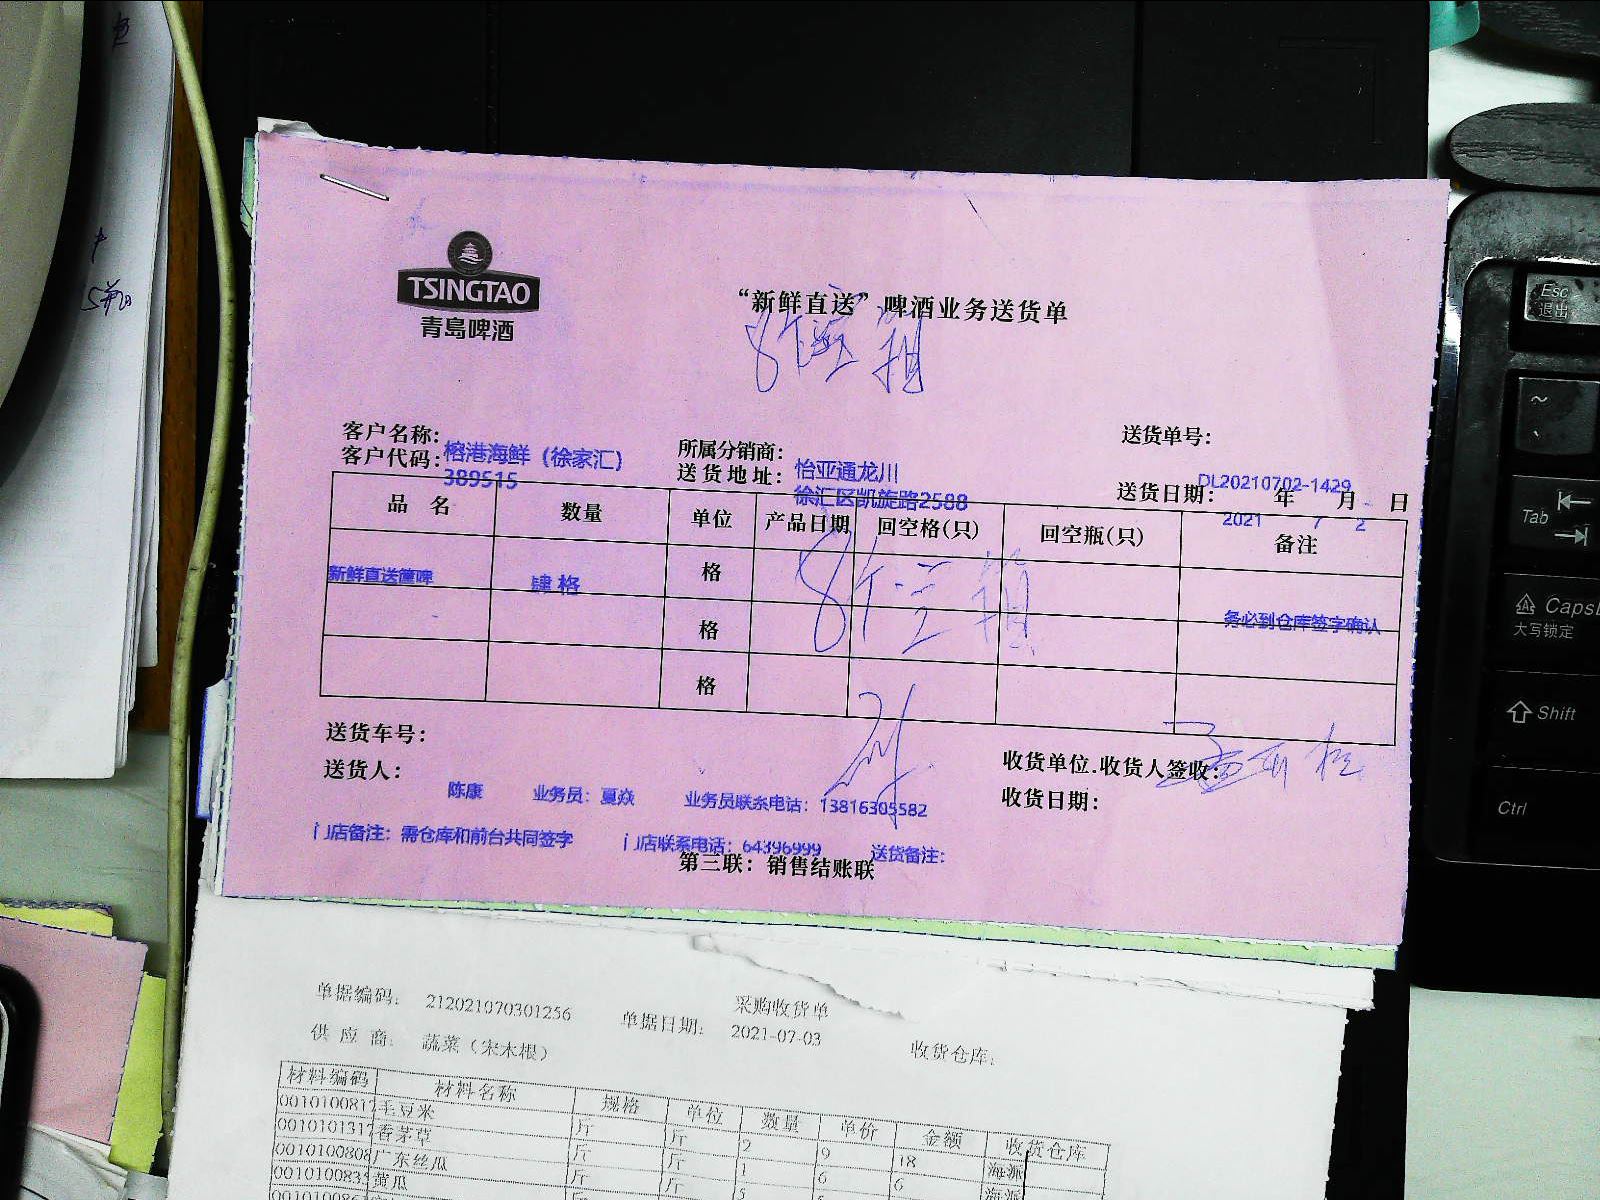 TSINGTAO
青島啤酒
“新鲜直送”啤酒业务送货单
8个空箱
客户名称：榕港海鲜（徐家汇）
客户代码：389515
所属分销商：怡亚通龙川
送货地址：徐汇区凯旋路2588
送货单号：DL20210702-1429
送货日期：2021年7月2日
品名 数量 单位 产品日期 回空格(只) 回空瓶(只) 备注
新鲜直送箽啤 肆格 格 务必到仓库签字确认
格
格
8个空箱
送货车号：
送货人：陈康 业务员：夏焱 业务员联系电话：13816305582
收货单位.收货人签收：
收货日期：
门店备注：需仓库和前台共同签字 门店联系电话：64396999 送货备注：
第三联：销售结账联
采购收货单
单据编码：212021070301256 单据日期：2021-07-03
供应商：蔬菜（宋木根） 收货仓库：
材料编码 材料名称 规格 单位 数量 单价 金额 收货仓库
001010081 毛豆米 斤 斤 2 9 18 海派
001010131 香茅草 斤 斤 1 6 6 海派
001010080 广东丝瓜 斤 斤 5
001010083 黄瓜 斤
Esc
退出
~
Tab
Caps
大写锁定
Shift
Ctrl